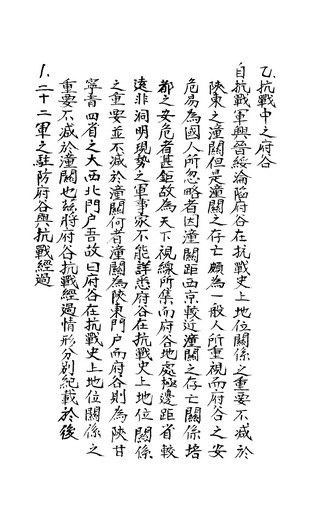 乙.抗戰中之府谷
自抗戰軍興晉綏淪陷府谷在抗戰史上地位關係之重要不减於
陝東之潼關但是潼關之存亡頗為一般人所重視而府谷之安
危易為國人所忽略者因潼關距西京較近潼關之存亡關係陪
都之安危者甚鉅故為天下視線所集而府谷地處極邊距省較
遠非洞明現勢之軍事家不能詳悉府谷在抗戰史上地位關係
之重要並不减於潼關何者潼關為陝東門户而府谷則為陝甘
寧青四省之大西北門户吾故曰府谷在抗戰史上地位關係之
重要不减於潼關也茲將府谷抗戰經過情形分別紀載於後
1.二十二軍之駐防府谷與抗戰經過